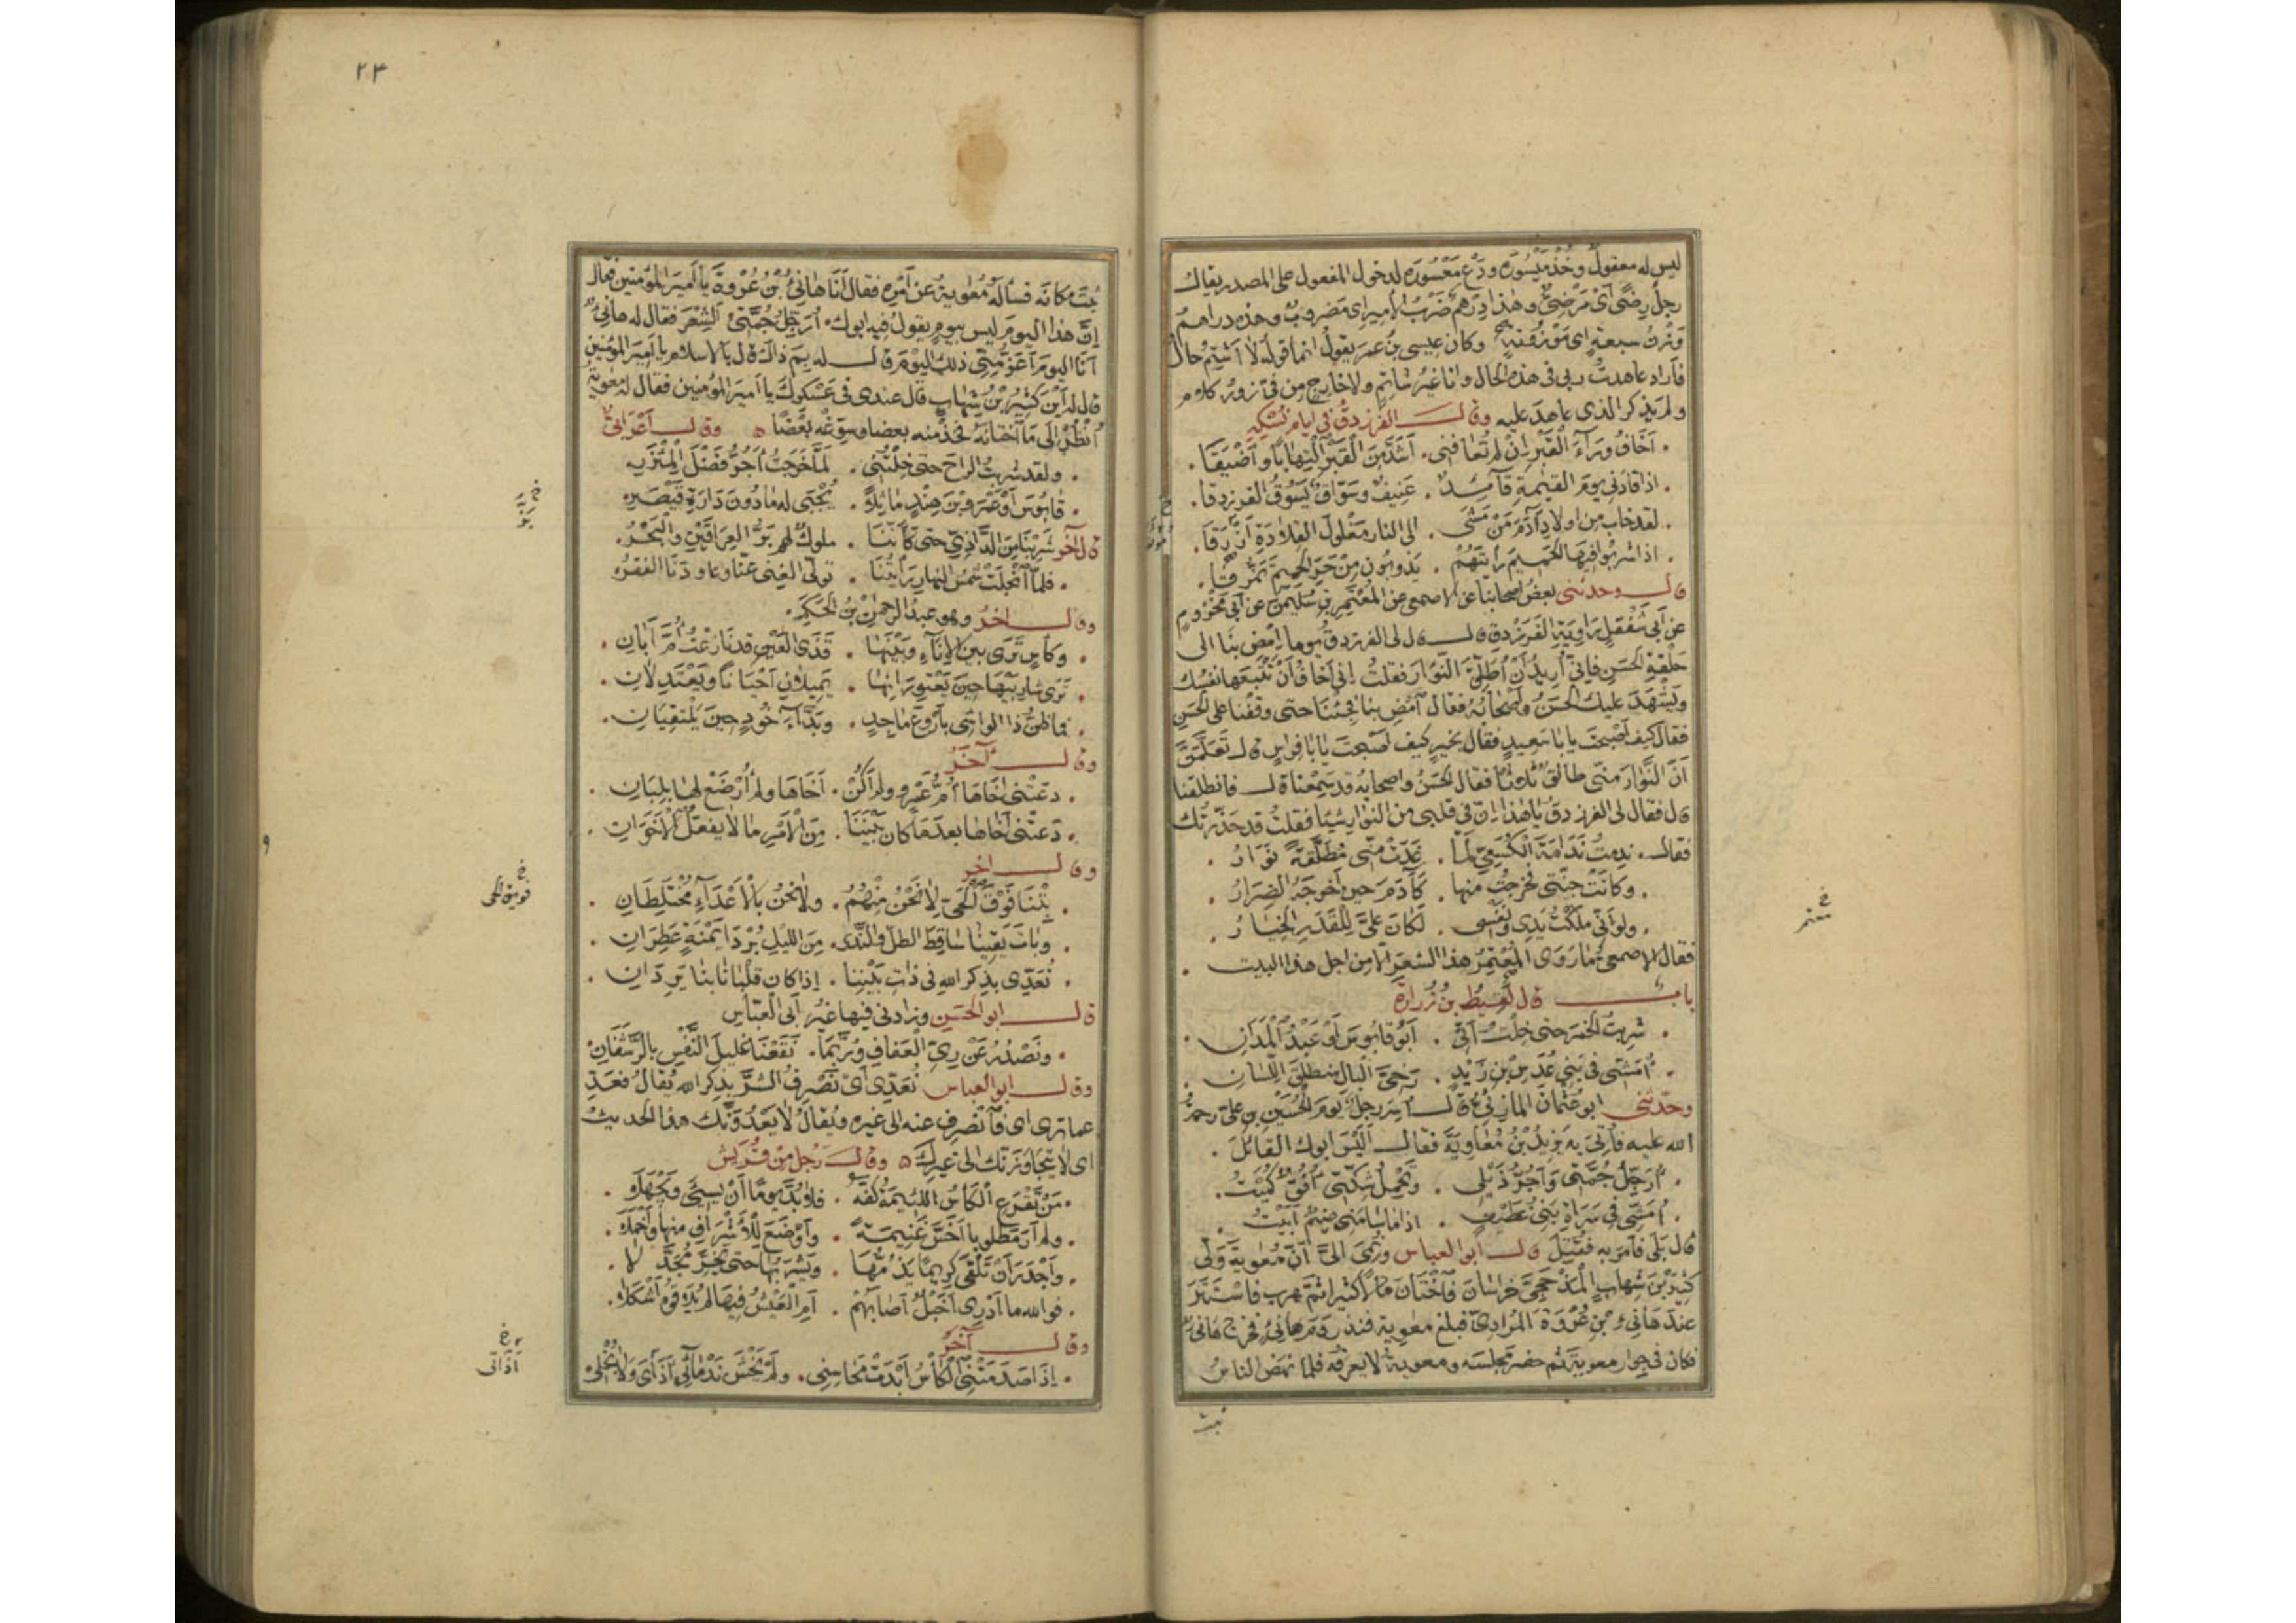 ليس له معقولٌ وخُذْ مَيْسُورَه ودَعْ مَعْسُورَه لدخول المفعول على المصدر يقال
رجلٌ رِضًى اىْ مَرْضِىٌّ وهٰذا دِرْهَمٌ ضَرْبُ الأمير اى مَضروبٌ وهذه دراهمُ
وَزْنُ سبعةٍ اى مَوْزُونَةٌ وكان عيسى بنُ عمر يقولُ انما قوله لا اَشْتِمُ حال
فاراد عاهدتُ ربى فى هذه الحال وانا غيرُ شاتمٍ ولا خارجٍ من فىّ زورُ كلام
ولم يذكر الذى عاهدَ عليه وقال الفرزدقُ فى ايام نُسْكِهِ
اَخَافُ وَرَآءَ الْقَبْرِ اِنْ لم تُعَافِنِى . اَشَدَّ مِنَ الْقَبْرِ الْتِهَابًا وَاَضْيَقَا .
اذا قادَنِى يومَ القيٰمةِ قآئدٌ . عَنِيفٌ وسَوّاقٌ يَسُوقُ الفرزدقا .
لقد خاب من اولادِ آدَمَ مَنْ مَشَى . الى النار مَغْلُولَ القِلَادَةِ اَزْرَقَا .
اذا شربوا فيها الحميمَ رايتَهُمْ . يَذوبُونَ مِنْ حَرِّ الحميمِ تَمَزُّقَا .
قال وحدثنى بعضُ اصحابنا عن الاصمعى عن المُعْتَمِرِ بنِ سُلَيمٰنَ عن اَبى مَخْزُومٍ
عن اَبى شَفْقَلٍ رَاوِيَةِ الفَرَزْدقِ قال قال لى الفرزدقُ يوما اِمْضِ بنا الى
حَلْقةِ الحَسَنِ فاِنِّى اُرِيدُ اَنْ اُطَلِّقَ النَّوَارَ فقلتُ اِنّى اَخَافُ اَنْ تَتْبَعَهَا نفسُك
ويَشْهَدَ عليك الحَسَنُ واَصْحَابُهُ فقال اَمْضِ بنا فجِئْنَا حتى وقفنا على الحَسَنِ
فقال كيف اَصْبحتَ يا با سَعِيدٍ فقال بخيرٍ كيف اَصْبَحتَ يا با فِراسٍ قال تَعَلَّمَنَّ
اَنَّ النَّوَارَ مِنّى طالقٌ ثَلٰثًا فقال الحَسَنُ واصحابُه قد سَمِعْنا قال فانطلقنا
قال فقال لى الفرزدقُ يا هٰذا اِنّ فى قلبى من النوارِ شيئا فقلتُ قد حَذَّرْتُك
فقال . نَدِمتُ نَدَامَةَ الْكُسَعِىِّ لَمّا . غَدَتْ مِنّى مُطَلَّقَةً نَوَارُ .
وكانَتْ جنّتى فخرجتُ منها . كَآدَمَ حينَ اَخرجَهُ الضِرَارُ .
ولو اَنّى مَلَكْتُ يَدِى ونَفْسى . لَكَانَ عَلَىَّ لِلْقَدَرِ الخِيَارُ .
فقال الاصمعىُّ ما رَوَى المُعْتَمِرُ هذا الشعرَ الّا من اجل هذا البيت .
باب قال لَقِيطُ بن زُرَارَةَ
شربتُ الخمرَ حتى خِلْتُ اَنِّى . اَبُو قابُوسَ اَوْ عَبْدُ الْمَدَانِ .
اُمَشِّى فى بَنِى عُدُسِ بْنِ زَيْدٍ . رَخِىَّ الْبالِ مُنطلقَ اللِّسَانِ .
وحَدّثنى ابو عُثْمانَ المازنىُّ قال اُسِرَ رجلٌ يومَ الحُسَيْنِ بن علىّ رحمةُ
الله عليه فاُتِىَ به يزيدُ بْنُ مُعَاوِيَةَ فقال اَلَيْسَ ابوك القائلَ .
اُرَجِّلُ جُمَّتى وَاَجُرُّ ذَيْلِى . وتَحْمِلُ شِكَّتِى اُفُقٌ كُمَيْتُ .
اُمَشِّى فى سَرَاةِ بَنِى غُطَيْفٍ . اذا ما سامَنِى ضيمٌ اَبَيْتُ .
قال بَلَى فاَمَرَ به فقُتِلَ قال ابو العباس ونُمِىَ اِلَىَّ اَنَّ مُعٰوِيَةَ وَلَّى
كَثِيرَ بْنَ شِهَابٍ الْمَذْحِجِىَّ خراسانَ فاخْتَانَ مَالًا كثيرا ثم هرب فاسْتَتَرَ
عندَ هَانِئِ بْنِ عُرْوَةَ المُرَادِىّ فبلغ معٰويةَ فنذرَ دَمَ هانِئٍ فخرج هَانِئٌ
فكان فى جِوارِ معويةَ ثم حضر مجلسَه ومعويةُ لا يعرفُه فلما نهَضَ الناسُ
ثبت
معتمر
٢٣
ثبَتَ مكانَه فسأله مُعٰويةُ عن اَمْرِه فقال اَنَا هَانِئُ بْنُ عُرْوةَ يا اَميرَ المؤمنين فقال
اِنّ هذا اليومَ ليس بيومٍ يقولُ فيه ابوك . اُرَجِّلُ جُمَّتى الشِّعْرَ فقال له هانِئٌ
اَنَا اليومَ اَعَزُّ مِنِّى ذلك اليَوْمَ قال له بِمَ ذاك قال بالاسلام يا اَميرَ المؤمنين
قال له اَيْنَ كَثِيرُ بْنُ شِهَابٍ قال عندى فى عَسْكرِكَ يا اَميرَ المؤمنين فقال له معٰويةُ
اُنْظُرْ الَى مَا اخْتَانَهُ فخُذْ منه بعضا وسَوِّغْهُ بَعْضًا وقال اَعْرَابىٌّ
ولقد شربتُ الراحَ حتى خِلْتُنِى . لَمّا خرجتُ اَجُرُّ فَضْلَ الْمِئْزَرِ
قابُوسَ اَوْ عَمْرَو بْنَ هِنْدٍ ماثِلًا . يُجْبَى له ما دُونَ دَارَةِ قَيْصَرِ
قال آخَر شربنا مِنَ الدّاذِىِّ حتى كاَنَّنَا . ملوكٌ لهم بَرُّ العِرَاقَيْنِ والْبَحْرُ .
فلمّا انْجَلَتْ شَمْسُ النهارِ رَاَيْتُنَا . تولّى الغِنى عنّا وعاودَنَا الفقرُ
وقال اٰخَرُ وهو عبدُ الرحمٰن بْنُ الْحَكَمِ .
وكَاْسٍ تَرَى بين الاِنَآءِ وبَيْنَهَا . قَذَى الْعَيْنِ قد نَازَعْتُ اُمَّ اَبَانِ .
تَرَى شارِبَيْهَا حينَ يَعْتَوِرَانِهَا . يَمِيلَانِ اَحْيَانًا ويَعْتَدِلَانِ .
فما ظنُّ ذا الواشى بِاَرْوَعَ مَاجدٍ . وبَدّآءَ خَوْدٍ حينَ يَلْتَقِيَانِ .
وقال اٰخَرُ
دعَتْنى اَخَاهَا اُمُّ عَمْرٍو ولم اَكُنْ . اَخَاهَا ولم اُرْضَعْ لها بِلِبَانِ .
دعَتْنى اَخَاها بعدَ مَا كان بَيْنَنَا . مِنَ الْاَمْرِ ما لا يفعلُ الْاَخَوَانِ .
وقال اٰخر
بِتْنَا فَوْقَ الْحَىِّ لا نَحْنُ مِنْهُمُ . ولا نحنُ بالْاَعْدَآءِ مُخْتَلِطَانِ .
وبَاتَ يَقِينا ساقِطَ الطلِّ والنَّدى . مِنَ الليْلِ بُرْدَا يُمْنَةٍ عَطِرَانِ .
نُعَدِّى بِذِكرِ اللهِ فى ذاتِ بَيْنِنا . اِذا كان قلْبَانَا بنا يَرِدَانِ .
قال ابو الحَسَنِ وزادنى فيها غيرُ اَبى العَبّاسِ
ونَصْدُرُ عَنْ رِىِّ العَفافِ ورُبَّمَا . نَقَعْنَا غليلَ النَّفْسِ بالرَّشَفَانِ
وقال ابو العباس نُعَدِّى اىْ نَصْرِفُ الشَّرَّ بذِكر الله يُقَالُ فَعَدِّ
عما ترى اى فانْصَرِف عنه الى غيره ويُقَالُ لا يَعْدُوَنَّك هذا الحديثُ
اى لا يَتَجاوَزَنّك الى غيرِكَ وقال رَجلٌ مِنْ قُرَيْش
مَنْ تَقْرَعِ الْكَأسُ اللئيمةُ كَفَّهُ . فلا بُدَّ يومًا اَنْ يسِىءَ ويَجْهَلَا .
ولم اَرَ مَطلوبا اَخَسَّ غَنِيمَةً . واَوْضَعَ لِلْاَشْرَافِ منها واَخْمَلَا .
واَجْدَرَ اَنْ تَلْقَى كريمًا يَذُمُّهَا . ويَشْرَبُهَا حتى يَخِرَّ مُجَدَّلَا .
فوالله ما اَدْرِى اَخَبْلٌ اَصَابَهُمْ . اَمِ الْعَيْشُ فيها لم يُلَاقُوهُ اَشْكَلَا .
وقال آخَرُ
اِذَا صَدَمَتْنِى الْكَأسُ اَبْدَتْ مَحَاسِنِى . ولَمْ يَخْشَ نَدْمَانِى اَذَاىَ ولا بُخْلِى
فويق الحى
اَذَاتى